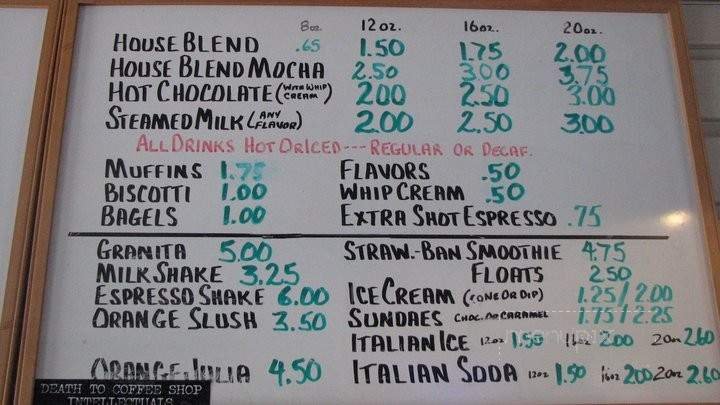 8oz. 12oz. 16oz. 20oz.
HOUSE BLEND .65 1.50 1.75 2.00
HOUSE BLEND MOCHA 2.50 3.00 3.75
HOT CHOCOLATE (WITH WHIP CREAM) 2.00 2.50 3.00
STEAMED MILK (ANY FLAVOR) 2.00 2.50 3.00
ALL DRINKS HOT OR ICED --- REGULAR OR DECAF.
MUFFINS 1.75 FLAVORS .50
BISCOTTI 1.00 WHIP CREAM .50
BAGELS 1.00 EXTRA SHOT ESPRESSO .75
GRANITA 5.00 STRAW.-BAN SMOOTHIE 4.75
MILKSHAKE 3.25 FLOATS 2.50
ESPRESSO SHAKE 6.00 ICE CREAM (CONE OR DIP) 1.25/2.00
ORANGE SLUSH 3.50 SUNDAES CHOC. OR CARAMEL 1.75/2.25
ITALIAN ICE 12oz 1.50 16oz 2.00 20oz 2.60
ORANGE JULIA 4.50 ITALIAN SODA 12oz 1.50 16oz 2.00 20oz 2.60
DEATH TO COFFEE SHOP
INTELLECTUALS